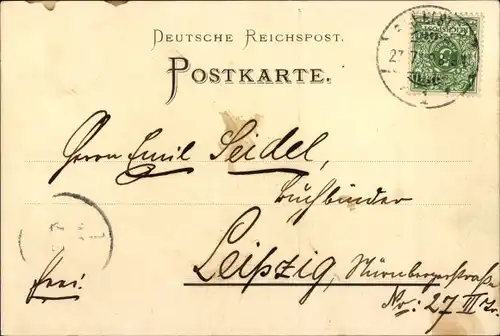 Deutsche Reichspost.
Postkarte.
Herrn Emil Seidel,
Buchbinder
Leipzig, Nürnbergerstraße
frei!
No: 27 III